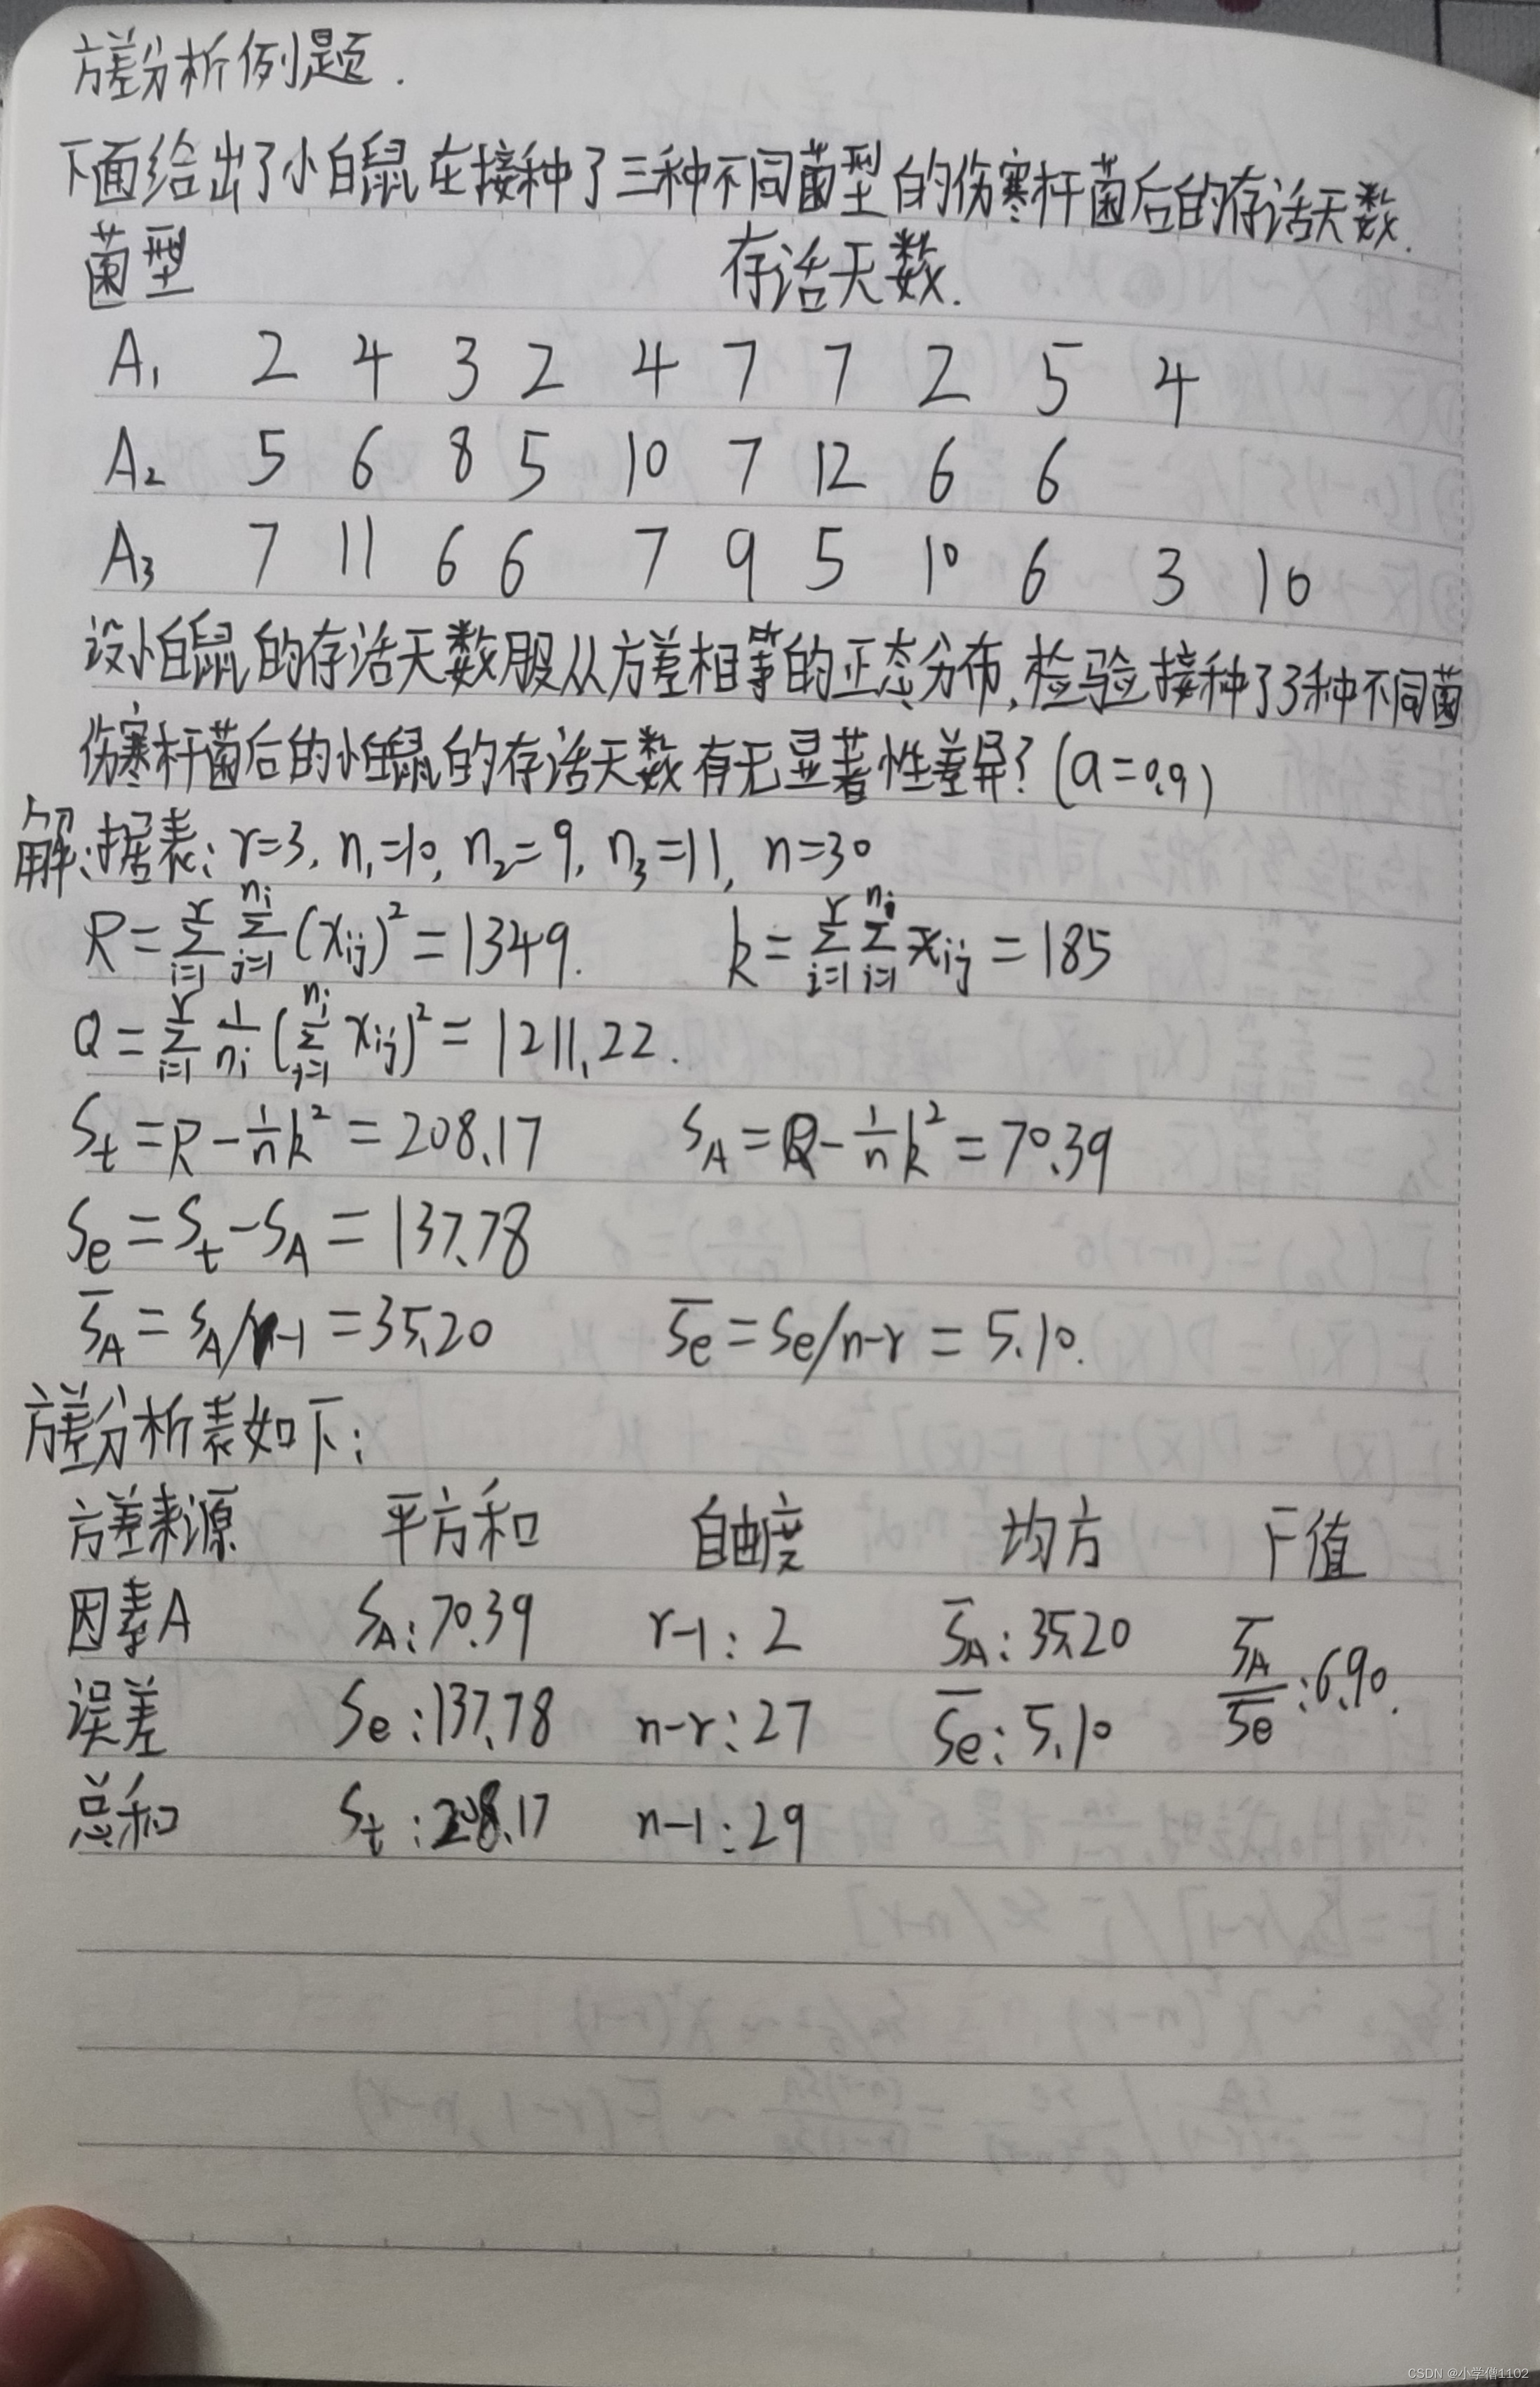 方差分析例题.
下面给出了小白鼠在接种了三种不同菌型的伤寒杆菌后的存活天数.
菌型 存活天数.
A₁ 2 4 3 2 4 7 7 2 5 4
A₂ 5 6 8 5 10 7 12 6 6
A₃ 7 11 6 6 7 9 5 10 6 3 10
设小白鼠的存活天数服从方差相等的正态分布,检验接种了3种不同菌
伤寒杆菌后的小白鼠的存活天数有无显著性差异?(a=0.9)
解:据表:r=3, n₁=10, n₂=9, n₃=11, n=30
R=∑_{i=1}^{r}∑_{j=1}^{n_i}(x_{ij})²=1349. k=∑_{i=1}^{r}∑_{i=1}^{n_i}x_{ij}=185
Q=∑_{i=1}^{r}\frac{1}{n_i}(∑_{j=1}^{n_i}x_{ij})²=1211.22.
S_t=R-\frac{1}{n}k²=208.17 S_A=Q-\frac{1}{n}k²=70.39
S_e=S_t-S_A=137.78
\overline{S_A}=S_A/r-1=35.20 \overline{S_e}=S_e/n-r=5.10.
方差分析表如下:
方差来源 平方和 自由度 均方 F值
因素A S_A:70.39 r-1:2 \overline{S_A}:35.20 \frac{\overline{S_A}}{\overline{S_e}}:6.90.
误差 S_e:137.78 n-r:27 \overline{S_e}:5.10
总和 S_t:208.17 n-1:29
CSDN @小学僧1102